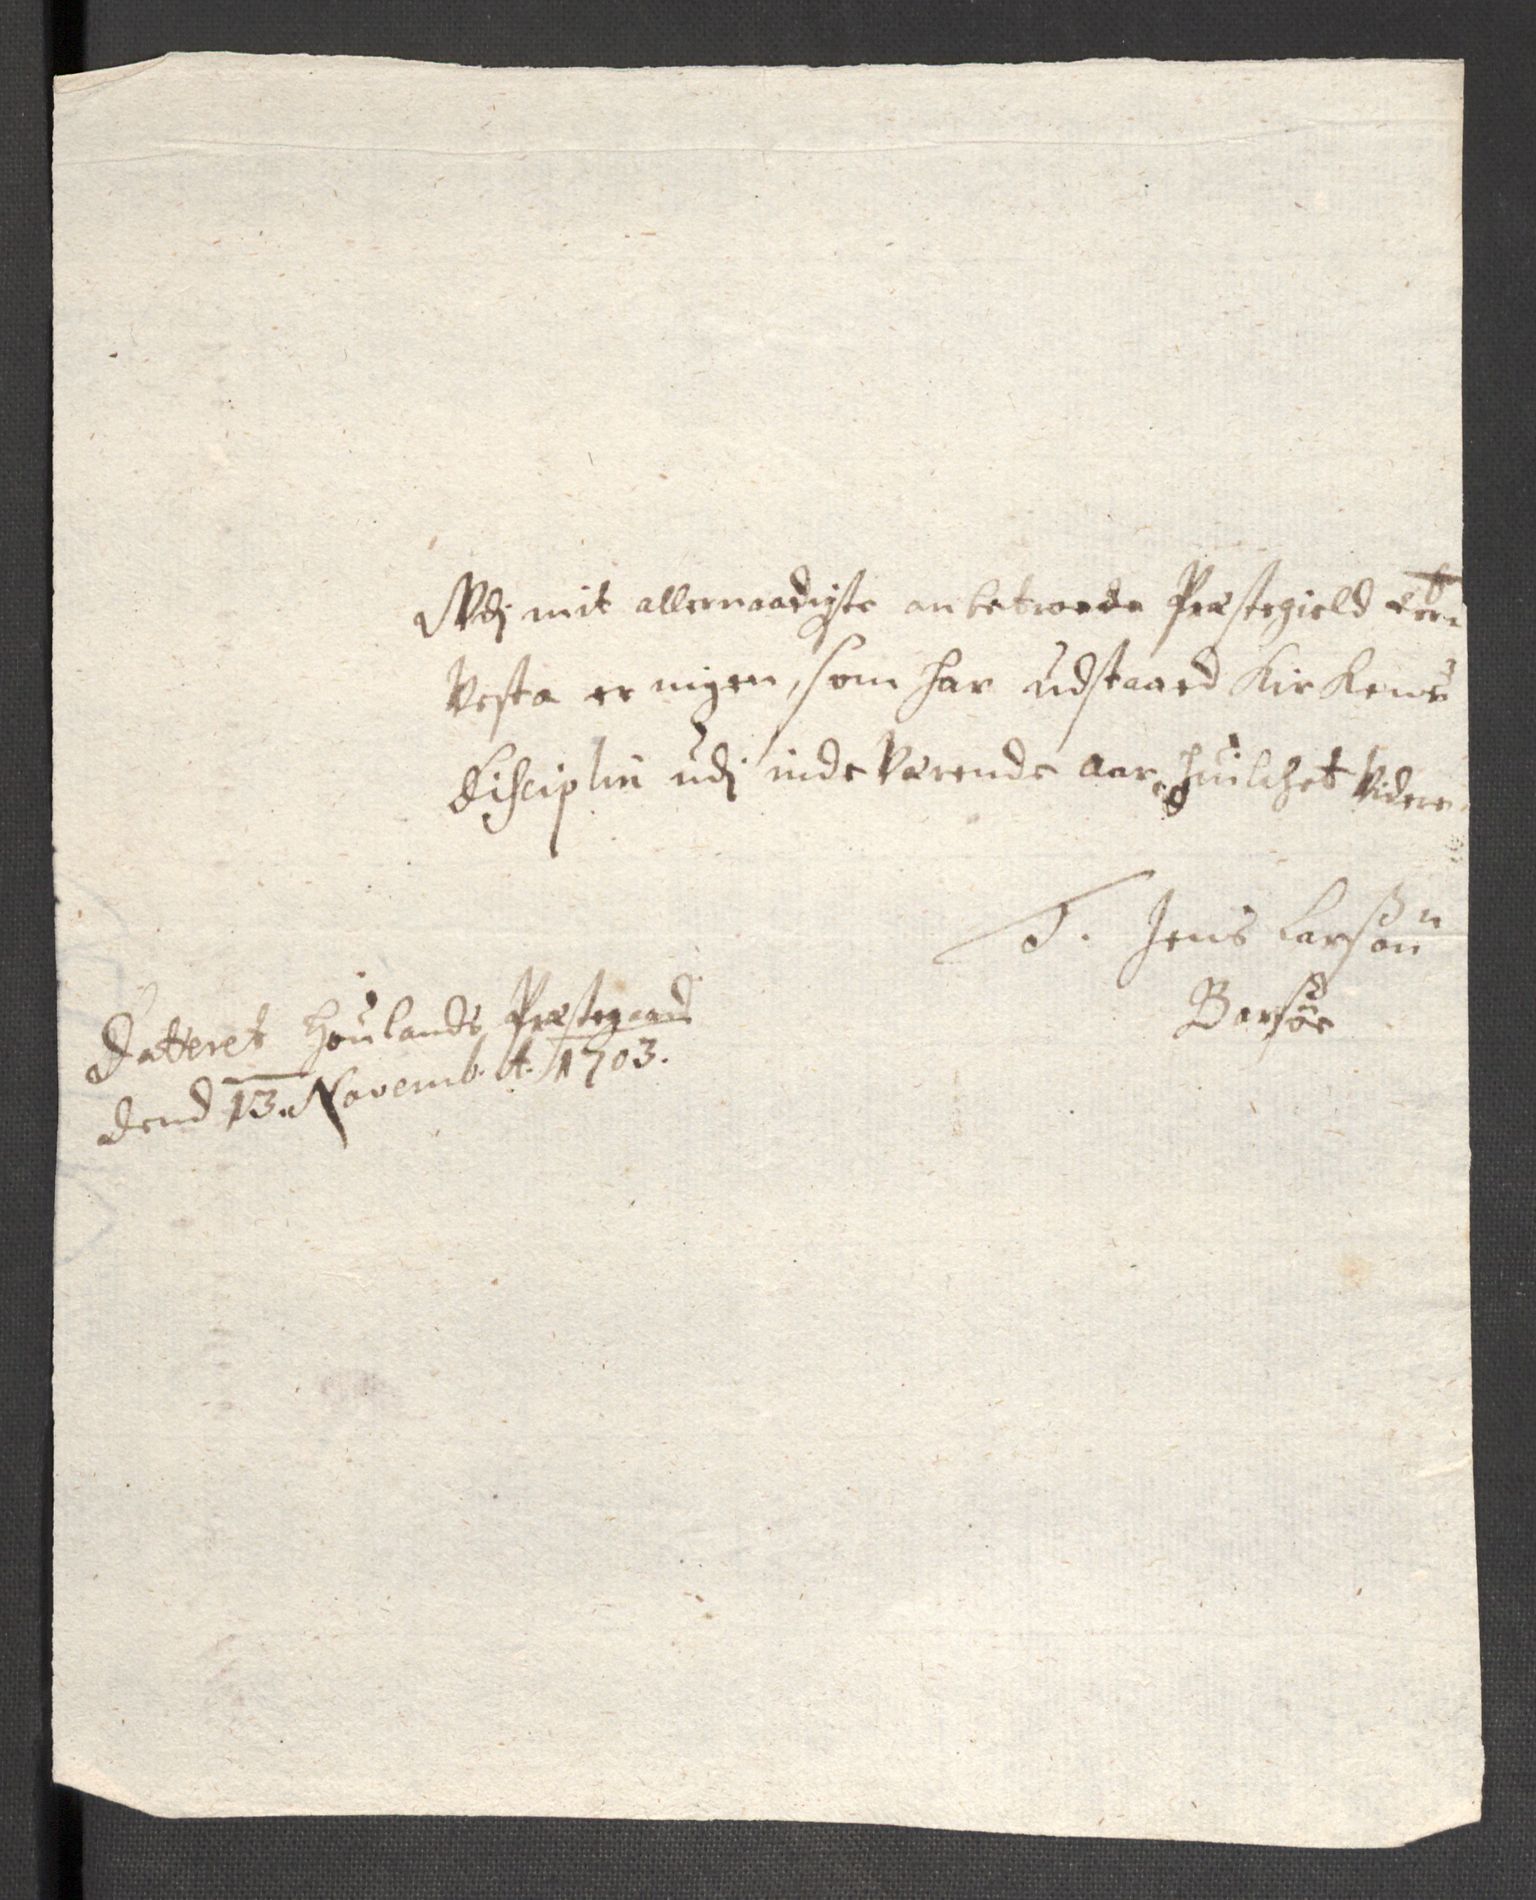 Udj mit allernaadigste anbetroede Præstegield
Vesta er ingen, som har udstaaed Kirkens
Disciplin udj indeværende aar, huilchet Videre
T. Jens Larsøn
Barsøe
Datteret Houlands Præstegaard
dend 13. Novemb. A. 1703.